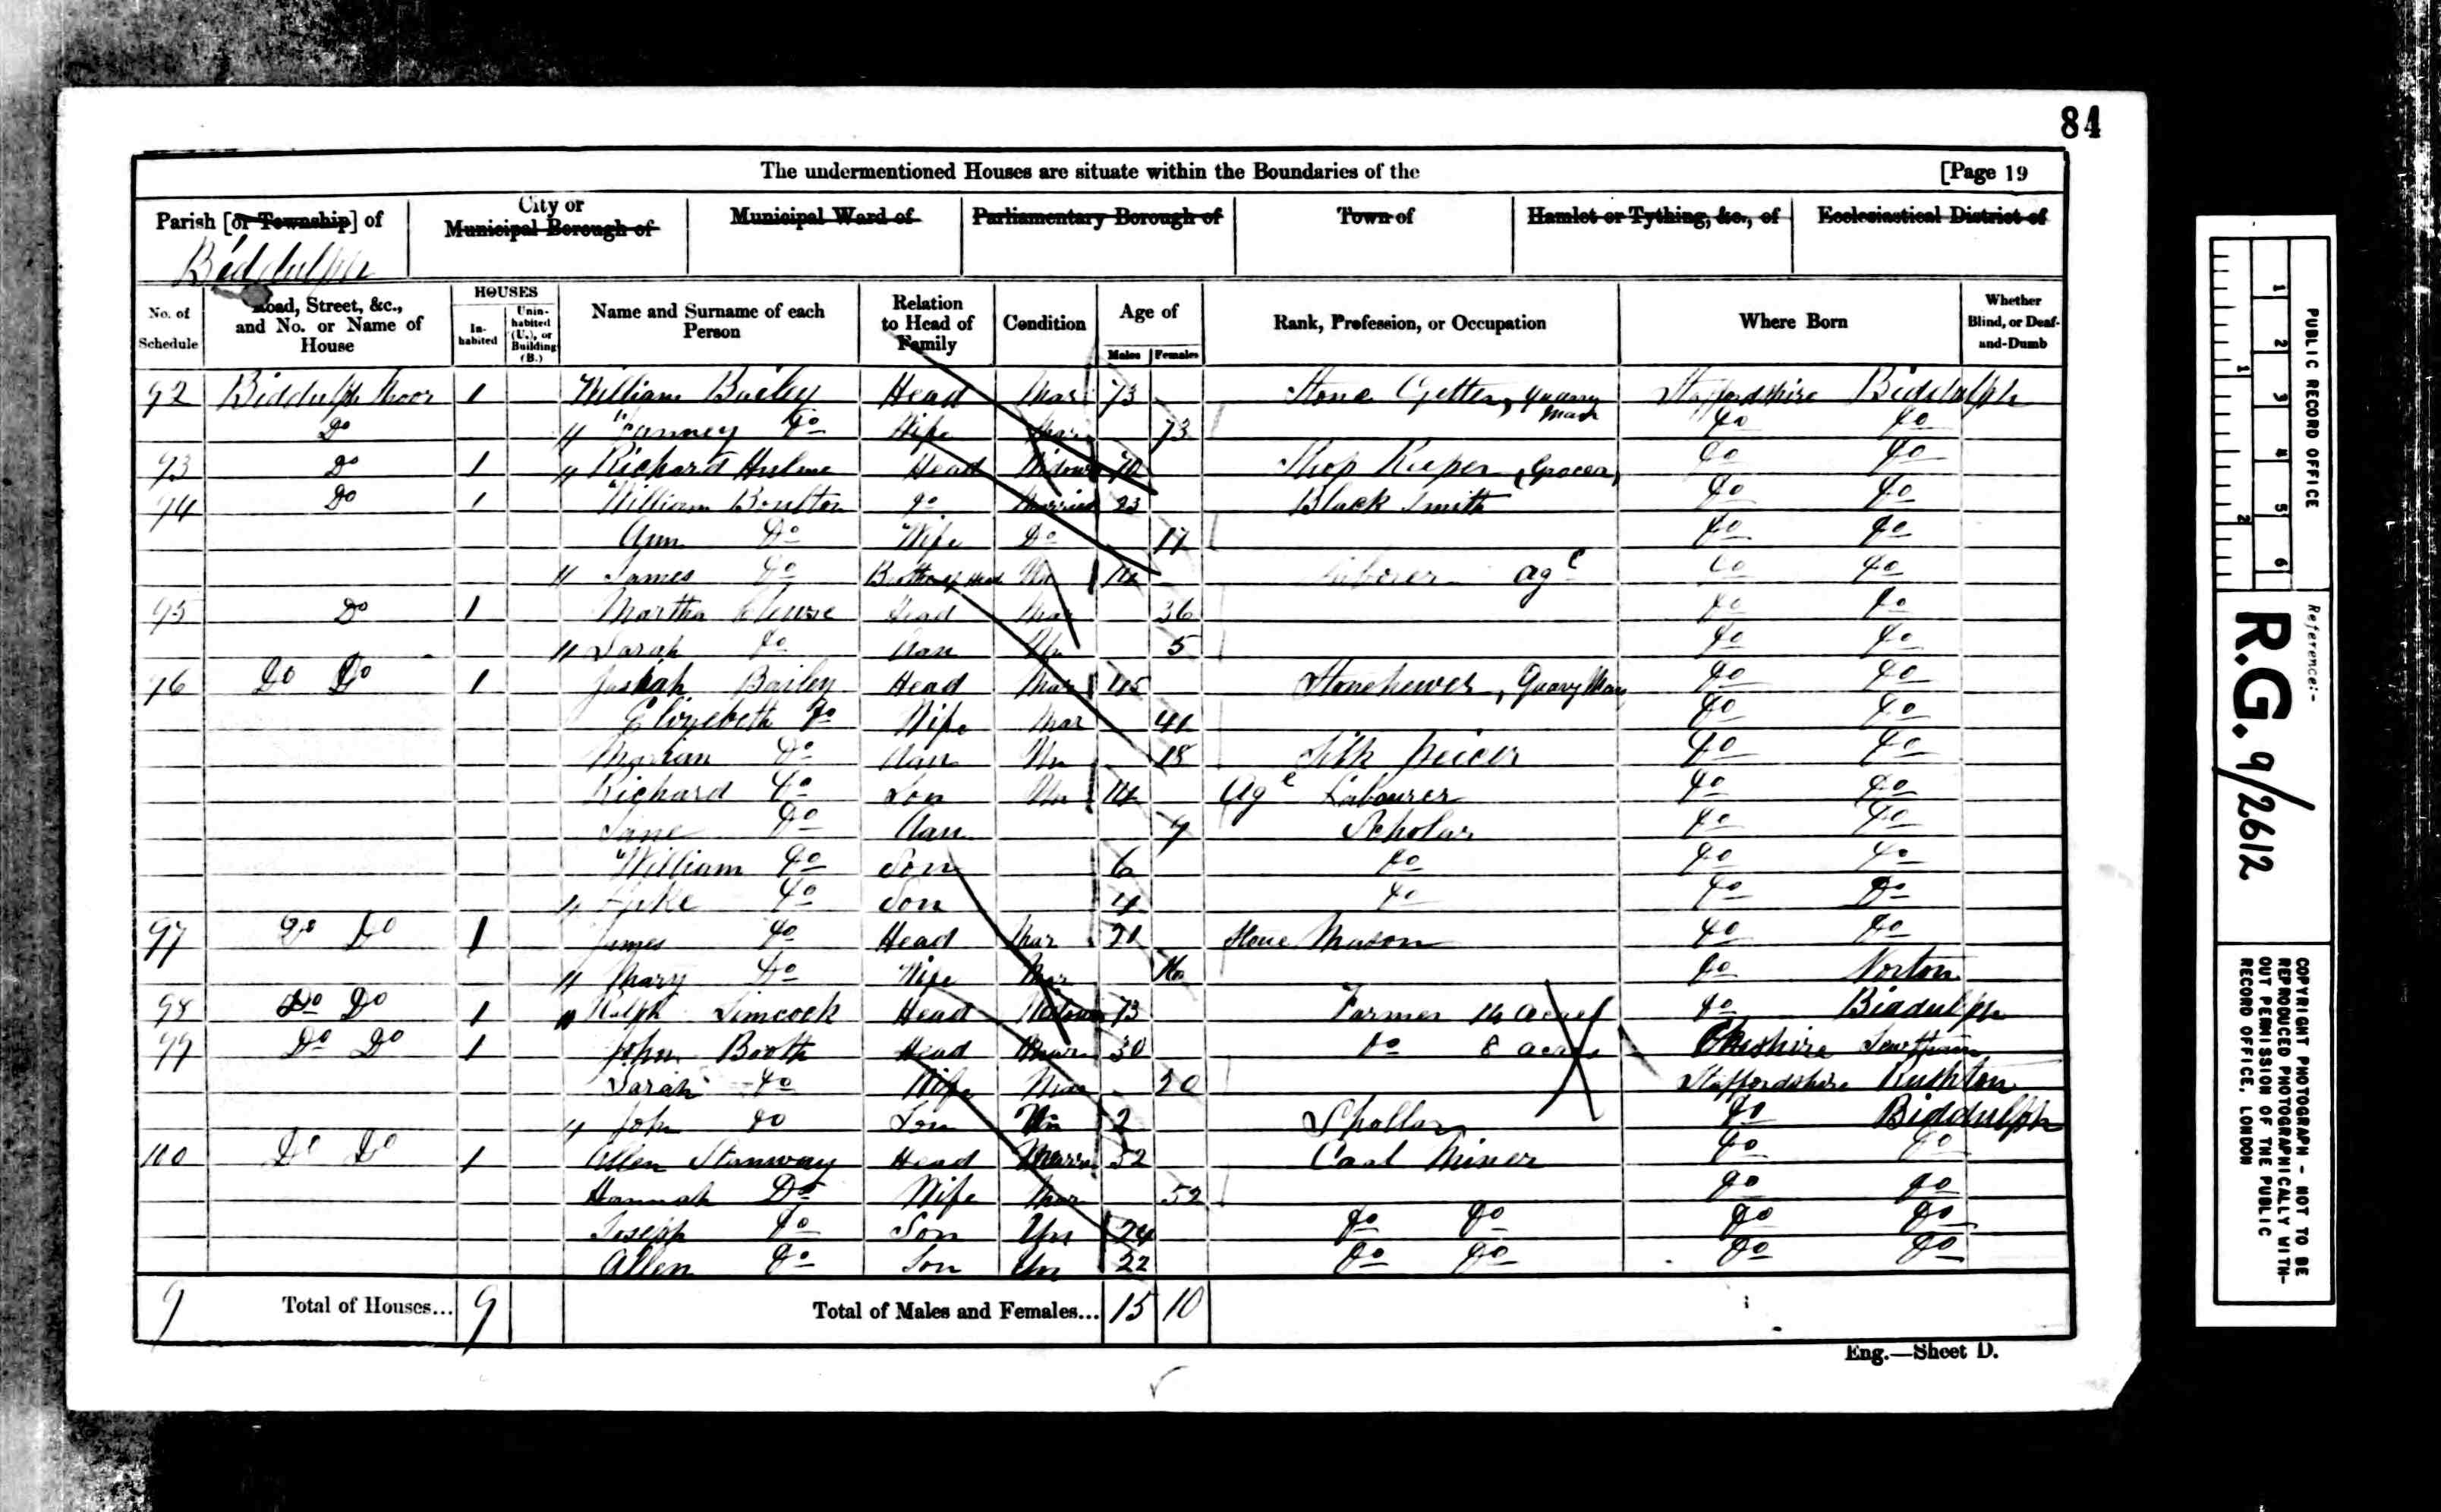 84
The undermentioned Houses are situate within the Boundaries of the [Page 19
Parish [or Township] of City or Municipal Borough of Municipal Ward of Parliamentary Borough of Town of Hamlet or Tything, &c., of Ecclesiastical District of
Biddulph
No. of Schedule Road, Street, &c., and No. or Name of House HOUSES Inhabited Uninhabited (U.), or Building (B.) Name and Surname of each Person Relation to Head of Family Condition Age of Males Females Rank, Profession, or Occupation Where Born Whether Blind, or Deaf-and-Dumb
92 Biddulph Moor 1 William Bailey Head Mar 73 Stone Getter, Quarry Man Staffordshire Biddulph
Do " Fanney Do Wife Mar 73 Do Do
93 Do 1 " Richard Hulme Head Widower 70 Shop Keeper (Grocer) Do Do
94 Do 1 William Boulton Do Married 23 Black Smith Do Do
Ann Do Wife Do 17 Do Do
" James Do Brother of Head Un 14 Laborer Ag Do Do
95 Do 1 Martha Head Mar 36 Do Do
" Sarah Do Dau Un 5 Do Do
96 Do Do 1 Bailey Head Mar 45 Stonehewer, Quarry Man Do Do
Elizebeth Do Wife Mar 41 Do Do
Marian Do Dau Un 18 Silk Do Do
Richard Do Son Un 14 Ag Labourer Do Do
Jane Do Dau 7 Scholar Do Do
William Do Son 6 Do Do Do
" Do Son 4 Do Do Do
97 Do Do 1 James Do Head Mar 21 Stone Mason Do Do
" Mary Do Wife Mar Do Norton
98 Do Do 1 " Ralph Simcock Head Widower 73 Farmer 14 Acres Do Biddulph
99 Do Do 1 John Booth Head Mar 30 Do 8 Acres Cheshire
Sarah Do Wife Mar 20 Staffordshire Rushton
" John Do Son Un 2 Shollar Do Biddulph
100 Do Do 1 Allen Stanway Head Marr 52 Coal Miner Do Do
Hannah Do Wife Mar 52 Do Do
Joseph Do Son Un 24 Do Do Do Do
Allen Do Son Un 22 Do Do Do Do
9 Total of Houses... 9 Total of Males and Females... 15 10
Eng.—Sheet D.
PUBLIC RECORD OFFICE
1 2 3 4 5 6
1 2
Reference:-
R.G. 9/2612
COPYRIGHT PHOTOGRAPH - NOT TO BE
REPRODUCED PHOTOGRAPHICALLY WITH-
OUT PERMISSION OF THE PUBLIC
RECORD OFFICE, LONDON